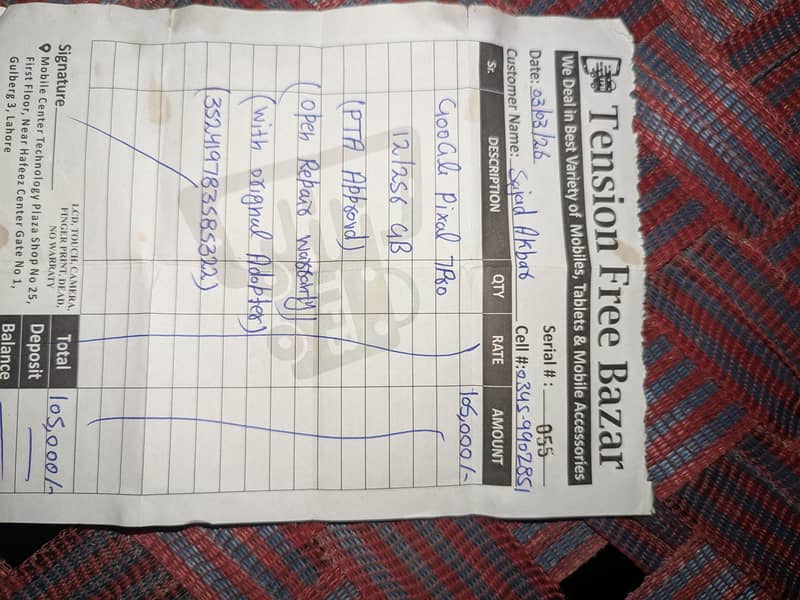 Tension Free Bazar
We Deal in Best Variety of Mobiles, Tablets & Mobile Accessories
Serial #: 055
Date: 03/03/26
Customer Name: Sajad Akbar Cell #: 0345-9902851
Sr. DESCRIPTION QTY RATE AMOUNT
GooGle Pixal 7Pro 105,000/-
12/256 GB
(PTA Approvd)
(Open Repair warranty)
(with original Adapter)
(352419783585322)
LCD, TOUCH, CAMERA,
FINGER PRINT, DEAD,
NO WARRATY
Signature
Total 105,000/-
Deposit
Balance
Mobile Center Technology Plaza Shop No 25,
First Floor, Near Hafeez Center Gate No 1,
Gulberg 3, Lahore